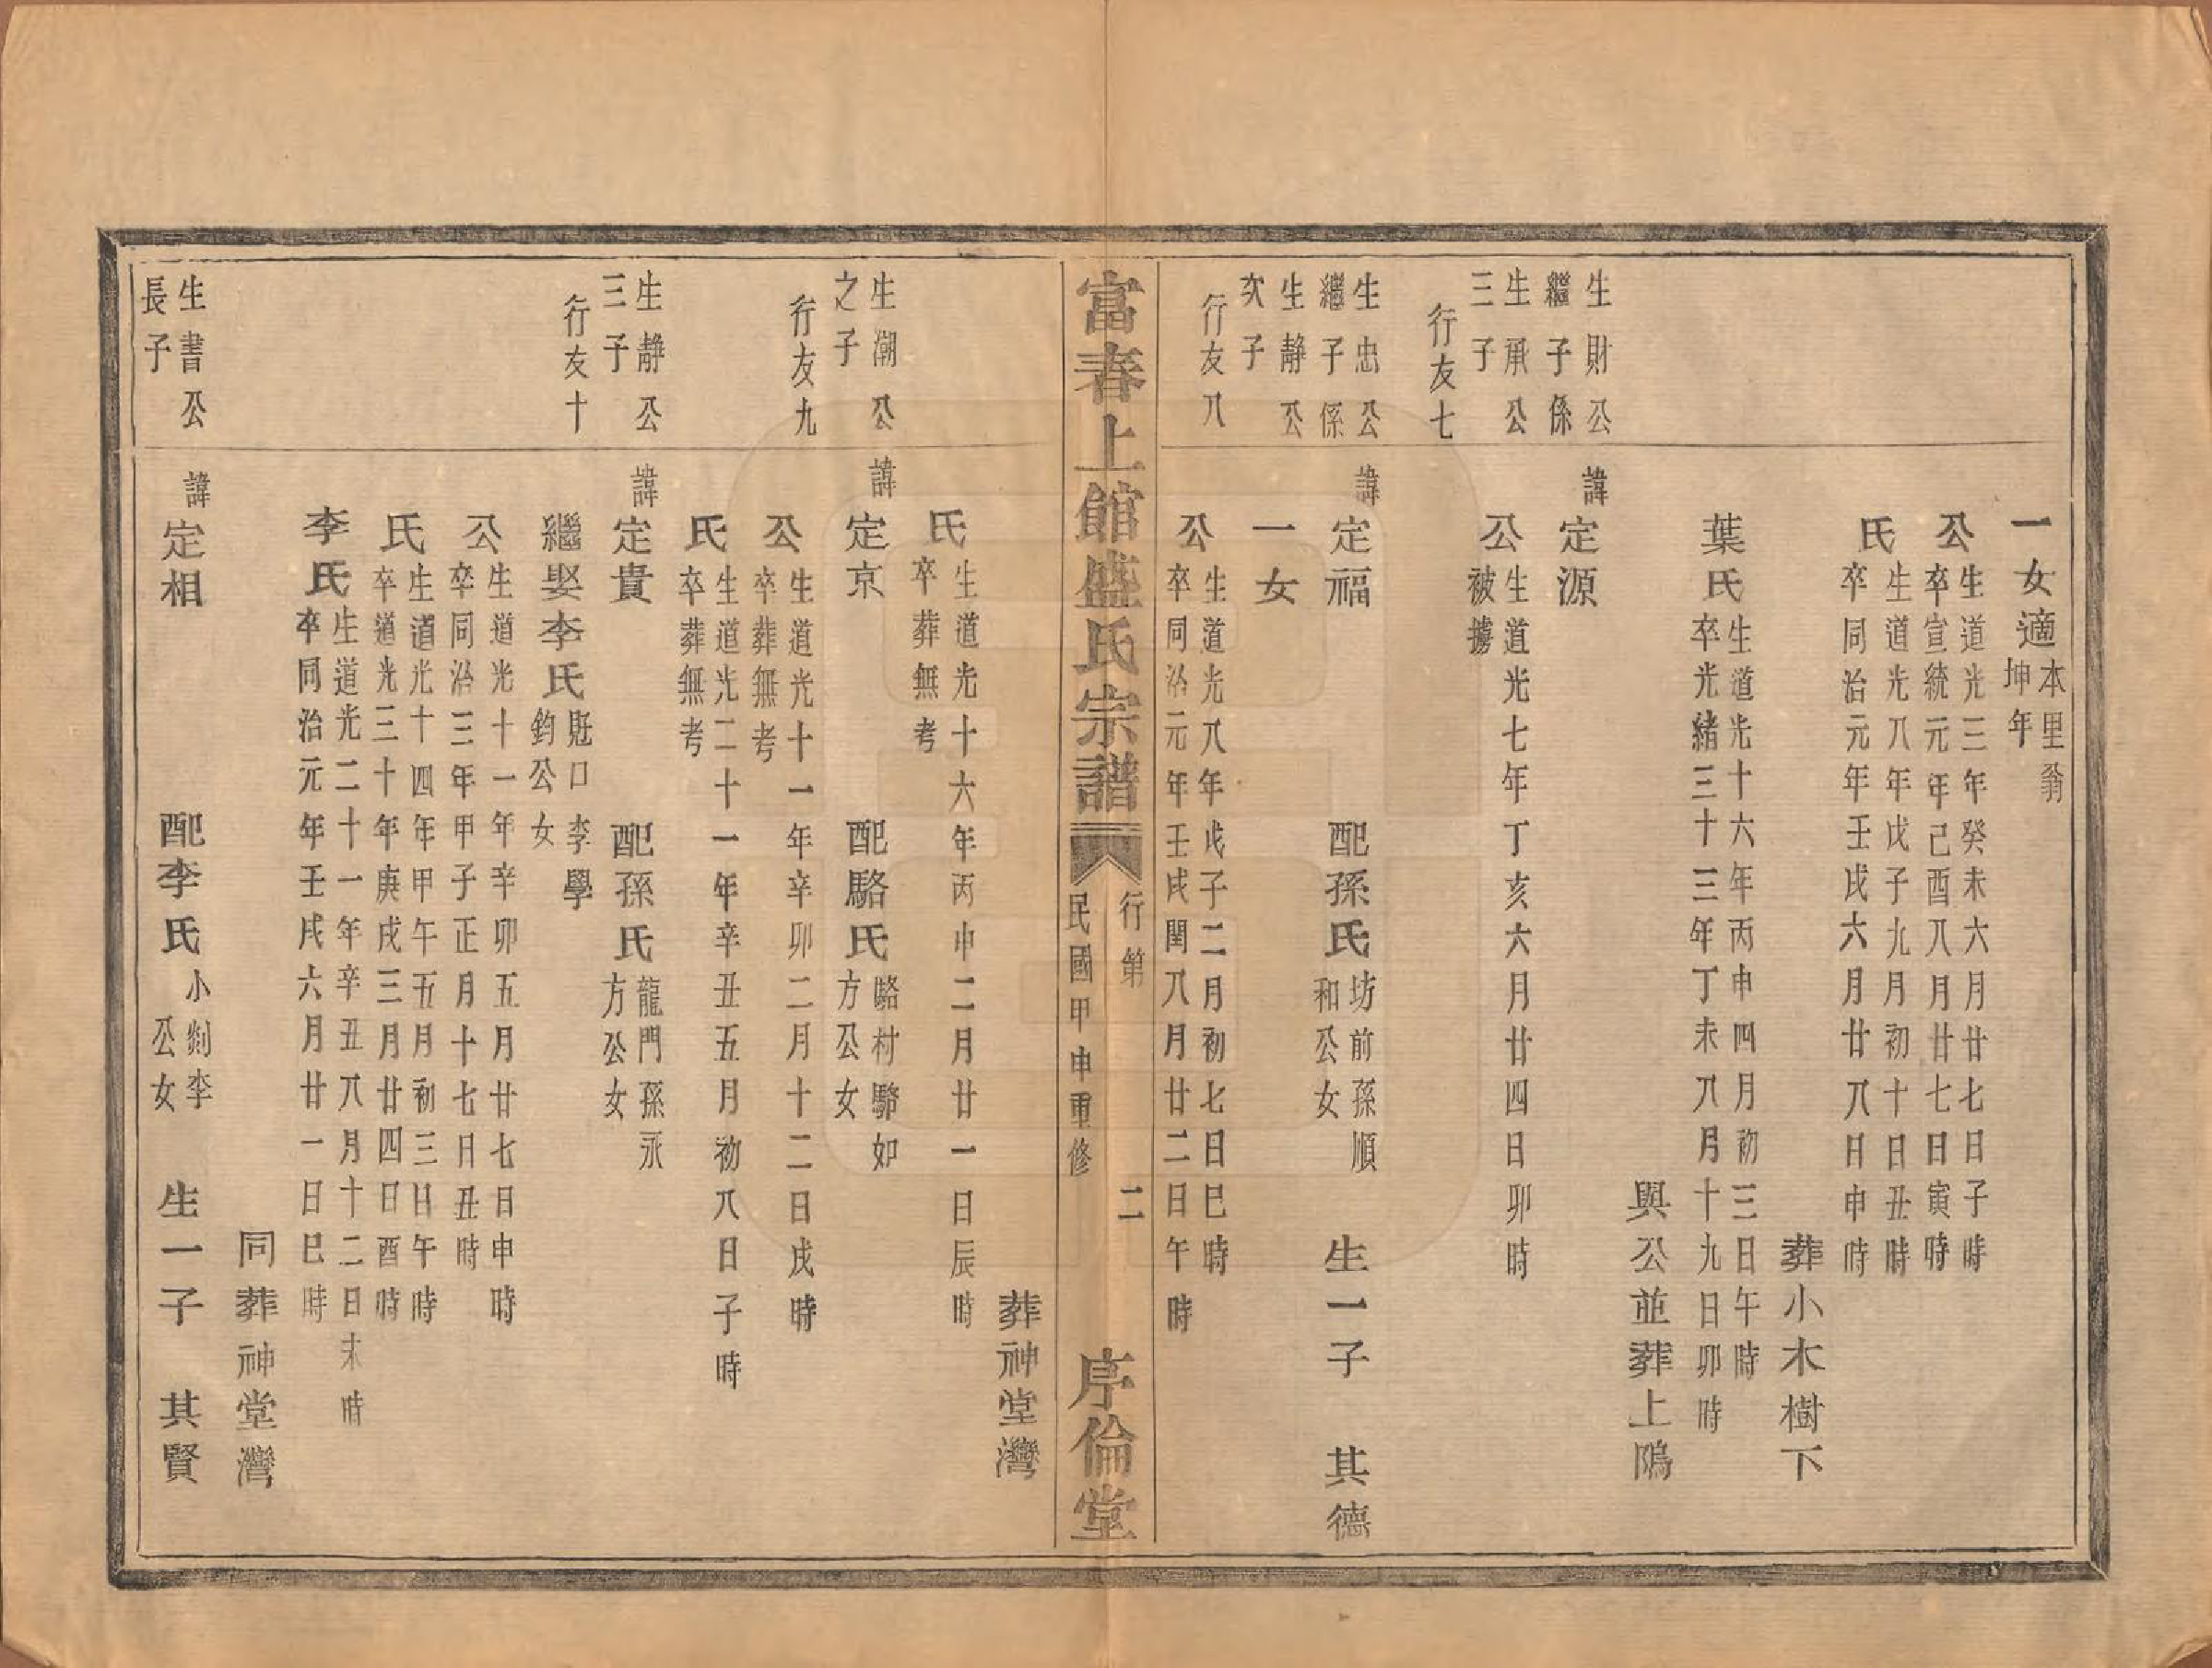 一女適本里翁
坤年
公生道光三年癸未六月廿七日子時
卒宣統元年己酉八月廿七日寅時
氏生道光八年戊子九月初十日丑時
卒同治元年壬戌六月廿八日申時
葬小木樹下
葉氏生道光十六年丙申四月初三日午時
卒光緒三十三年丁未八月十九日卯時
與公並葬上隖
生財公
繼子係
諱定源
生承公
三子
公生道光七年丁亥六月廿四日卯時
被擄
行友七
生忠公
繼子係
諱定福
配孫氏坊前孫順
和公女
生一子
其德
生靜公
次子
一女
行友八
公生道光八年戊子二月初七日巳時
卒同治元年壬戌閏八月廿二日午時
富春上館盛氏宗譜
行第
二
民國甲申重修
序倫堂
葬神堂灣
氏生道光十六年丙申二月廿一日辰時
卒葬無考
生潮公
之子
諱定京
配駱氏駱村駱如
方公女
行友九
公生道光十一年辛卯二月十二日戌時
卒葬無考
氏生道光二十一年辛丑五月初八日子時
卒葬無考
生靜公
三子
諱定貴
配孫氏龍門孫永
方公女
行友十
繼娶李氏 口李學
鈞公女
公生道光十一年辛卯五月廿七日申時
卒同治三年甲子正月十七日丑時
氏生道光十四年甲午五月初三日午時
卒道光三十年庚戌三月廿四日酉時
李氏生道光二十一年辛丑八月十二日未時
卒同治元年壬戌六月廿一日巳時
同葬神堂灣
生書公
長子
諱定相
配李氏小剡李
公女
生一子
其賢